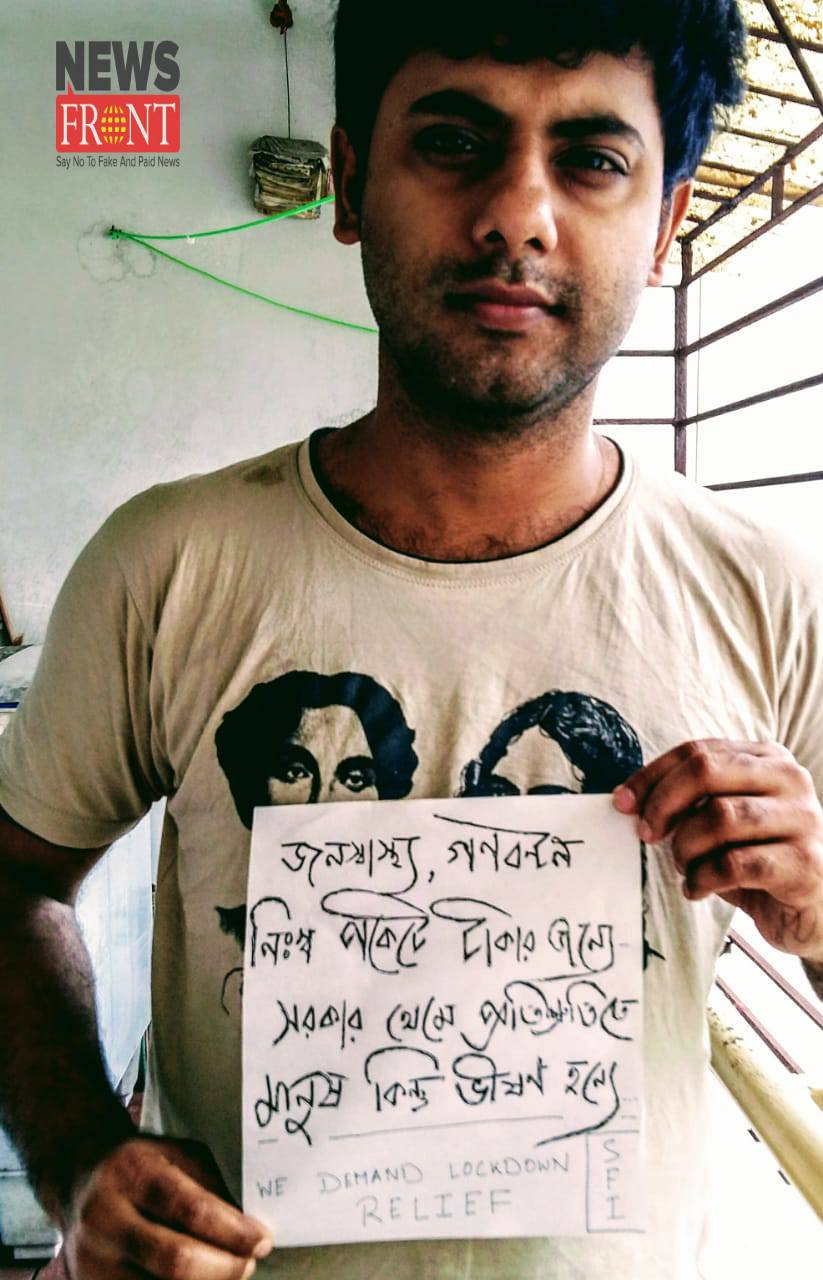 NEWS
FRONT
Say No To Fake And Paid News
জনস্বাস্থ্য, গণবন্টন
নিঃস্ব পকেটে টাকার জন্যে
সরকার থেমে প্রতিশ্রুতিতে
মানুষ কিন্তু ভীষণ হন্যে...
WE DEMAND LOCKDOWN
RELIEF
SFI